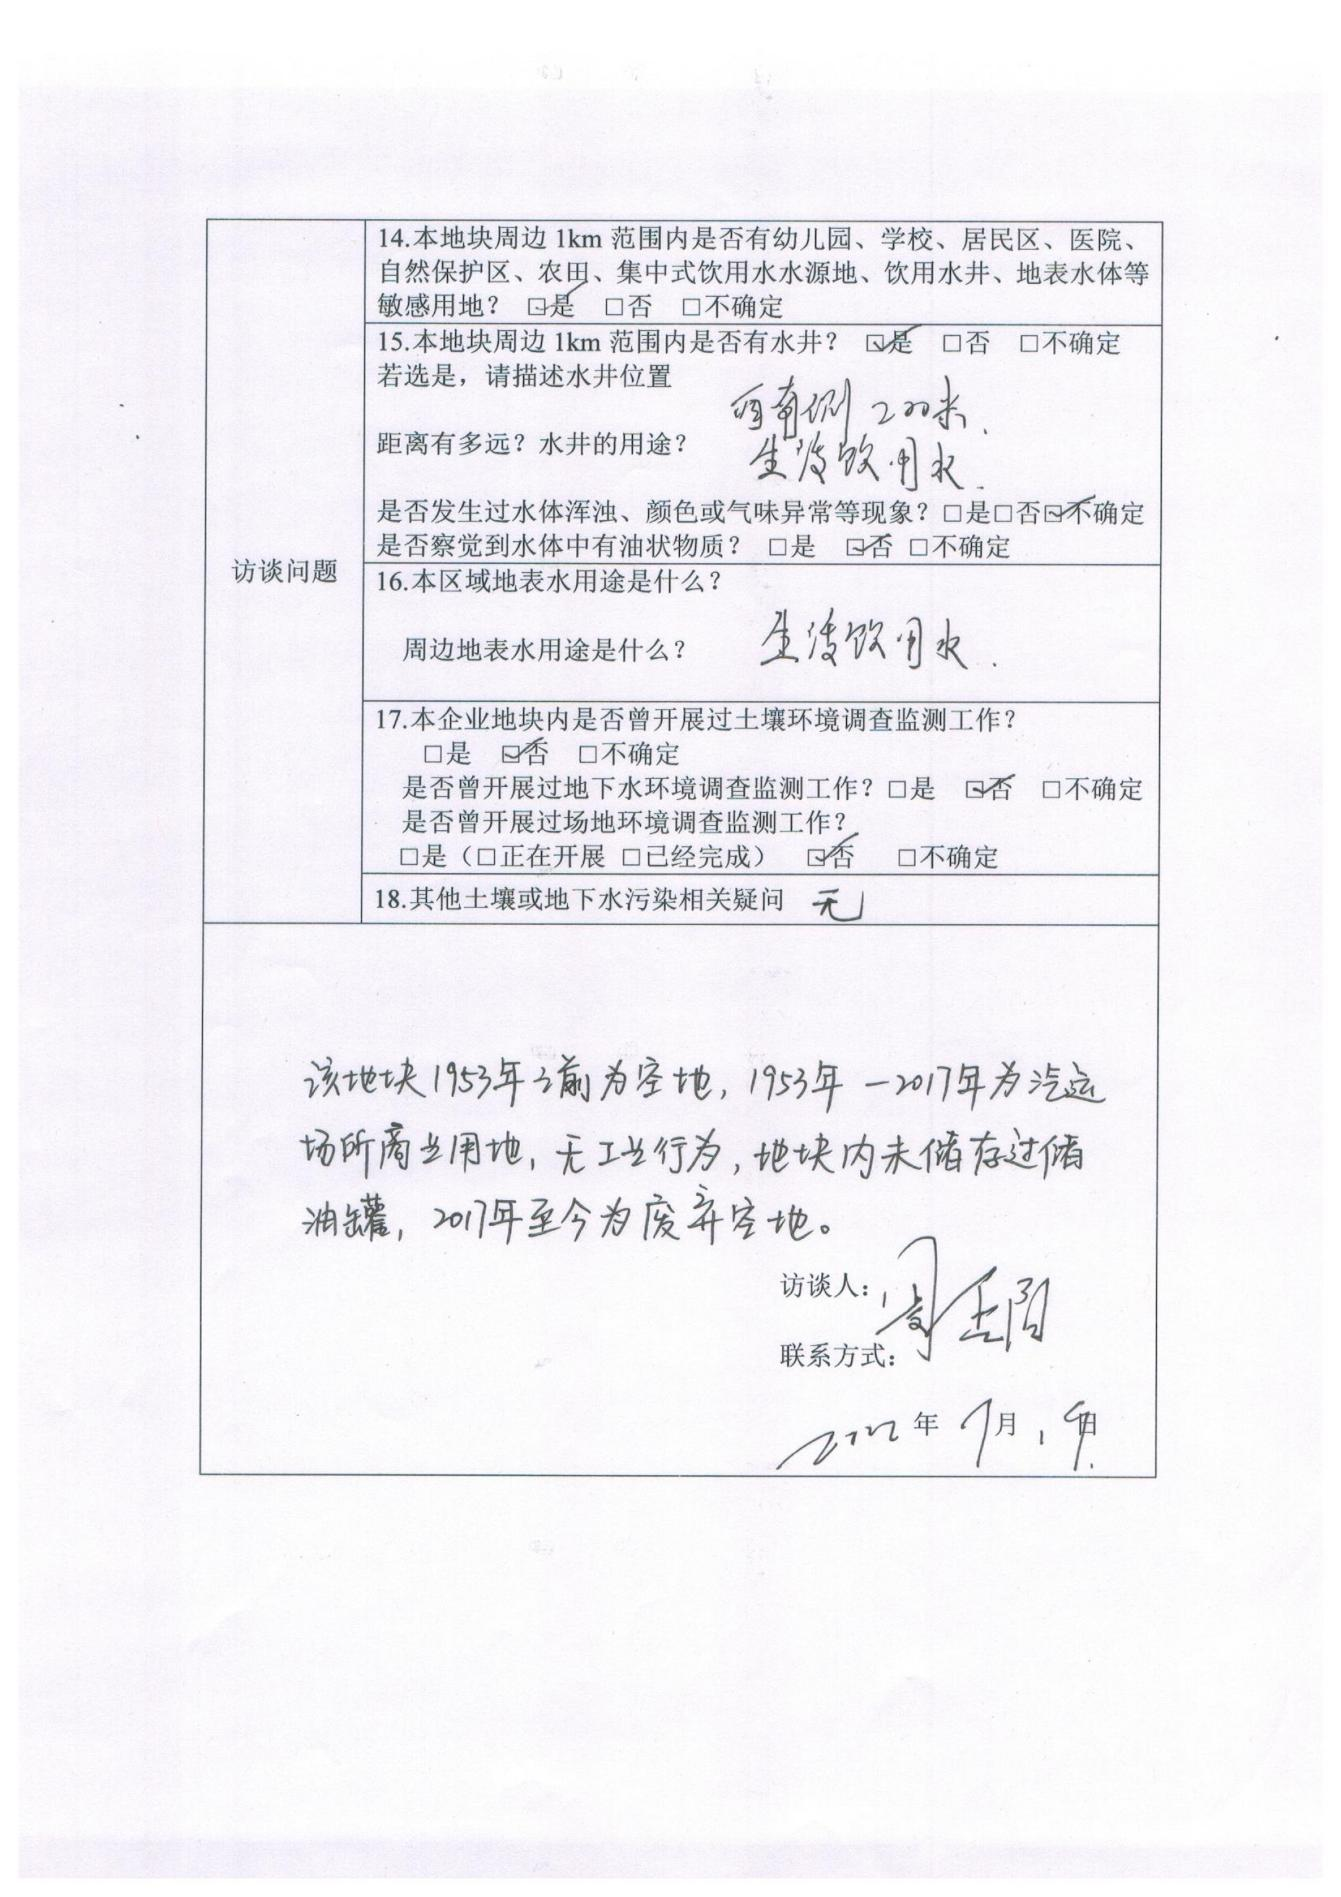 14.本地块周边 1km 范围内是否有幼儿园、学校、居民区、医院、
自然保护区、农田、集中式饮用水水源地、饮用水井、地表水体等
敏感用地？ ☑是 □否 □不确定
15.本地块周边 1km 范围内是否有水井？ ☑是 □否 □不确定
若选是，请描述水井位置
西南侧 200米.
距离有多远？水井的用途？
生活饮用水.
是否发生过水体浑浊、颜色或气味异常等现象？□是□否☑不确定
是否察觉到水体中有油状物质？ □是 ☑否 □不确定
访谈问题
16.本区域地表水用途是什么？
周边地表水用途是什么？ 生活饮用水.
17.本企业地块内是否曾开展过土壤环境调查监测工作？
□是 ☑否 □不确定
是否曾开展过地下水环境调查监测工作？□是 ☑否 □不确定
是否曾开展过场地环境调查监测工作？
□是（□正在开展 □已经完成） ☑否 □不确定
18.其他土壤或地下水污染相关疑问 无
该地块1953年之前为空地，1953年—2017年为汽运
场所商业用地，无工业行为，地块内未储存过储
油罐，2017年至今为废弃空地。
访谈人：周
联系方式：
2022年 月 日